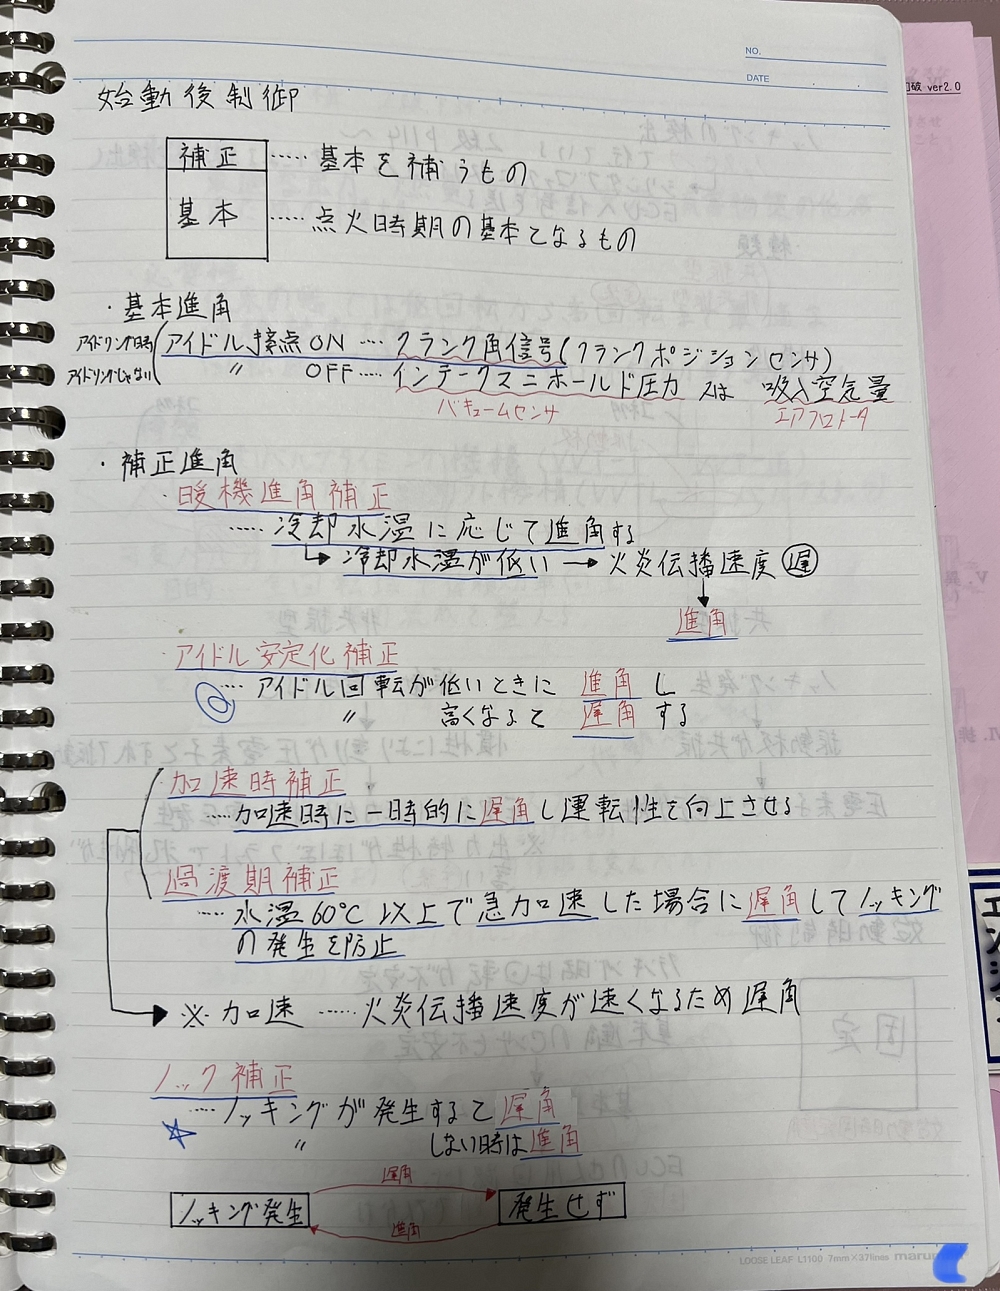 NO.
DATE
破 ver2.0
始動後制御
補正 ‥‥‥ 基本を補うもの
基本 ‥‥‥ 点火時期の基本となるもの
・基本進角
アイドリング時 アイドル接点ON ‥‥ クランク角信号(クランクポジションセンサ)
アイドリングじゃない 〃 OFF ‥‥ インテークマニホールド圧力 又は 吸入空気量
バキュームセンサ エアフロメータ
・補正進角
・暖機進角補正
‥‥‥ 冷却水温に応じて進角する
→冷却水温が低い → 火炎伝播速度 遅
進角
・アイドル安定化補正
‥‥ アイドル回転が低いときに 進角し
〃 高くなると 遅角する
・加速時補正
‥‥‥加速時に一時的に遅角し運転性を向上させる
過渡期補正
‥‥‥ 水温60℃以上で急加速した場合に遅角してノッキング
の発生を防止
※ 加速 ‥‥‥ 火炎伝播速度が速くなるため遅角
ノック補正
‥‥‥ノッキングが発生すると遅角
☆ 〃 しない時は進角
遅角
ノッキング発生 発生せず
進角
LOOSE LEAF L1100 7mm×37lines
エンジン